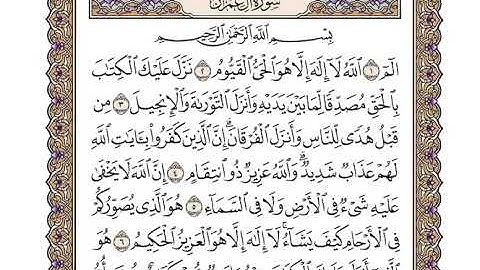 سُورَةُ آلِ عِمْرَانَ
بِسْمِ ٱللَّهِ ٱلرَّحْمَٰنِ ٱلرَّحِيمِ
الٓمٓ ١ ٱللَّهُ لَآ إِلَٰهَ إِلَّا هُوَ ٱلْحَىُّ ٱلْقَيُّومُ ٢ نَزَّلَ عَلَيْكَ ٱلْكِتَٰبَ
بِٱلْحَقِّ مُصَدِّقًا لِّمَا بَيْنَ يَدَيْهِ وَأَنزَلَ ٱلتَّوْرَىٰةَ وَٱلْإِنجِيلَ ٣ مِن
قَبْلُ هُدًى لِّلنَّاسِ وَأَنزَلَ ٱلْفُرْقَانَ ۗ إِنَّ ٱلَّذِينَ كَفَرُوا۟ بِـَٔايَٰتِ ٱللَّهِ
لَهُمْ عَذَابٌ شَدِيدٌ ۗ وَٱللَّهُ عَزِيزٌ ذُو ٱنتِقَامٍ ٤ إِنَّ ٱللَّهَ لَا يَخْفَىٰ
عَلَيْهِ شَىْءٌ فِى ٱلْأَرْضِ وَلَا فِى ٱلسَّمَآءِ ٥ هُوَ ٱلَّذِى يُصَوِّرُكُمْ
فِى ٱلْأَرْحَامِ كَيْفَ يَشَآءُ ۚ لَآ إِلَٰهَ إِلَّا هُوَ ٱلْعَزِيزُ ٱلْحَكِيمُ ٦ هُوَ